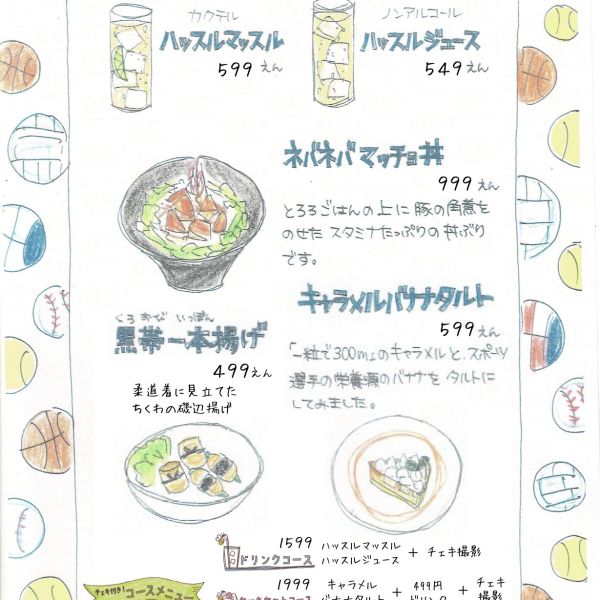 カクテル
ハッスルマッスル
599えん
ノンアルコール
ハッスルジュース
549えん
ネバネバマッチョ丼
999えん
とろろごはんの上に豚の角煮を
のせたスタミナたっぷりの丼ぶり
です。
キャラメルバナナタルト
599えん
「一粒で300m」のキャラメルと、スポーツ
選手の栄養源のバナナをタルトに
してみました。
くろおびいっぽん
黒帯一本揚げ
499えん
柔道着に見立てた
ちくわの磯辺揚げ
ドリンクコース
1599 ハッスルマッスル
ハッスルジュース + チェキ撮影
チェキ付き!コースメニュー
1999 キャラメル
バナナタルト + 499円
ドリンク + チェキ
撮影